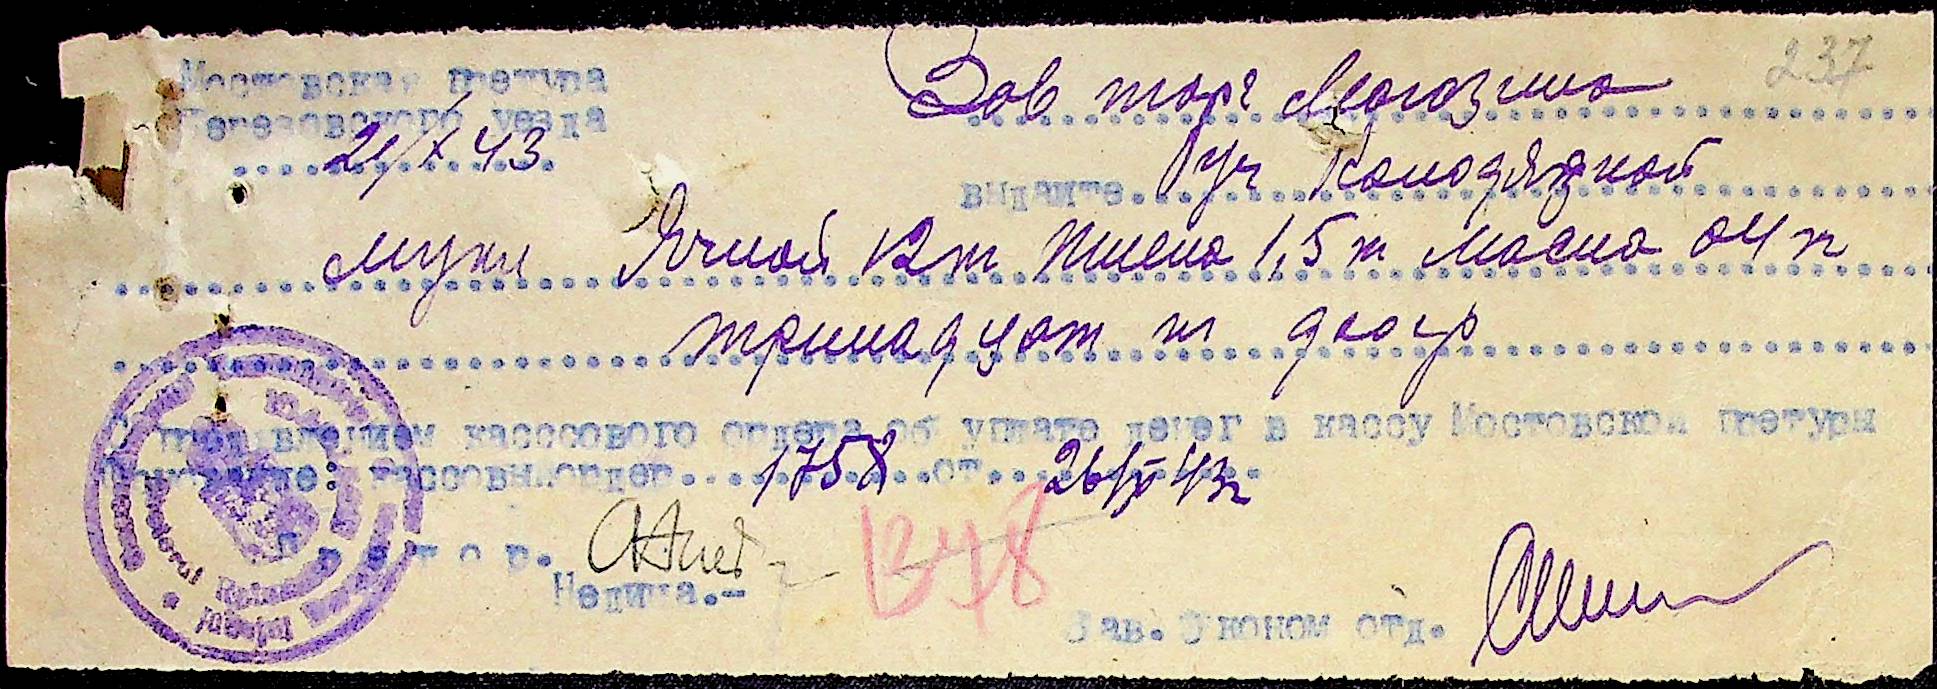 237
Мостовская претура
Березовского уезда
21/X 43.
Зав торг Магазина
выдайте Гуч Колодяжной
муки Ячной 12т Пшена 1,5т Масла 04т
тринадцат
С предявлением кассового ордера об уплате денег в кассу Мостовской претуры
Основание: кассовы.ордер 1758 от 26/X 43г
Претор.
Недина.-
1348
Зав. Эконом отд.